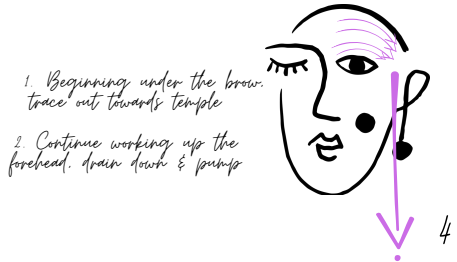 1. Beginning under the brow,
trace out towards temple
2. Continue working up the
forehead, drain down & pump
4